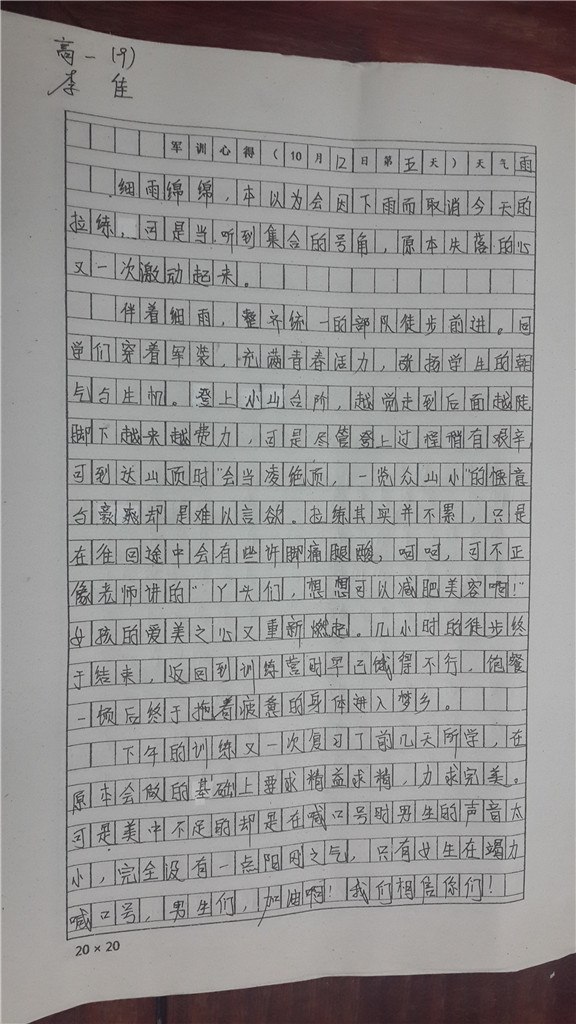 高一(9)
李佳
军训心得(10月12日第五天)天气雨
细雨绵绵,本以为会因下雨而取消今天的
拉练,可是当听到集合的号角,原本失落的心
又一次激动起来。
伴着细雨,整齐统一的部队徒步前进。同
学们穿着军装,充满青春活力,张扬学生的朝
气与生机。登上小山台阶,越觉走到后面越陡
脚下越来越费力,可是尽管登上过程稍有艰辛,
可到达山顶时"会当凌绝顶,一览众山小"的惬意
与豪爽却是难以言欲。拉练其实并不累,只是
在往回途中会有些许脚痛腿酸,呵呵,可不正
像老师讲的"丫头们,想想可以减肥美容啊!"
女孩的爱美之心又重新燃起。几小时的徒步终
于结束,返回到训练营时早已饿得不行,饱餐
一顿后终于拖着疲惫的身体进入梦乡。
下午的训练又一次复习了前几天所学,在
原本会做的基础上要求精益求精,力求完美。
可是美中不足的却是在喊口号时男生的声音太
小,完全没有一点阳刚之气,只有女生在竭力
喊口号,男生们,加油啊!我们相信你们!
20×20